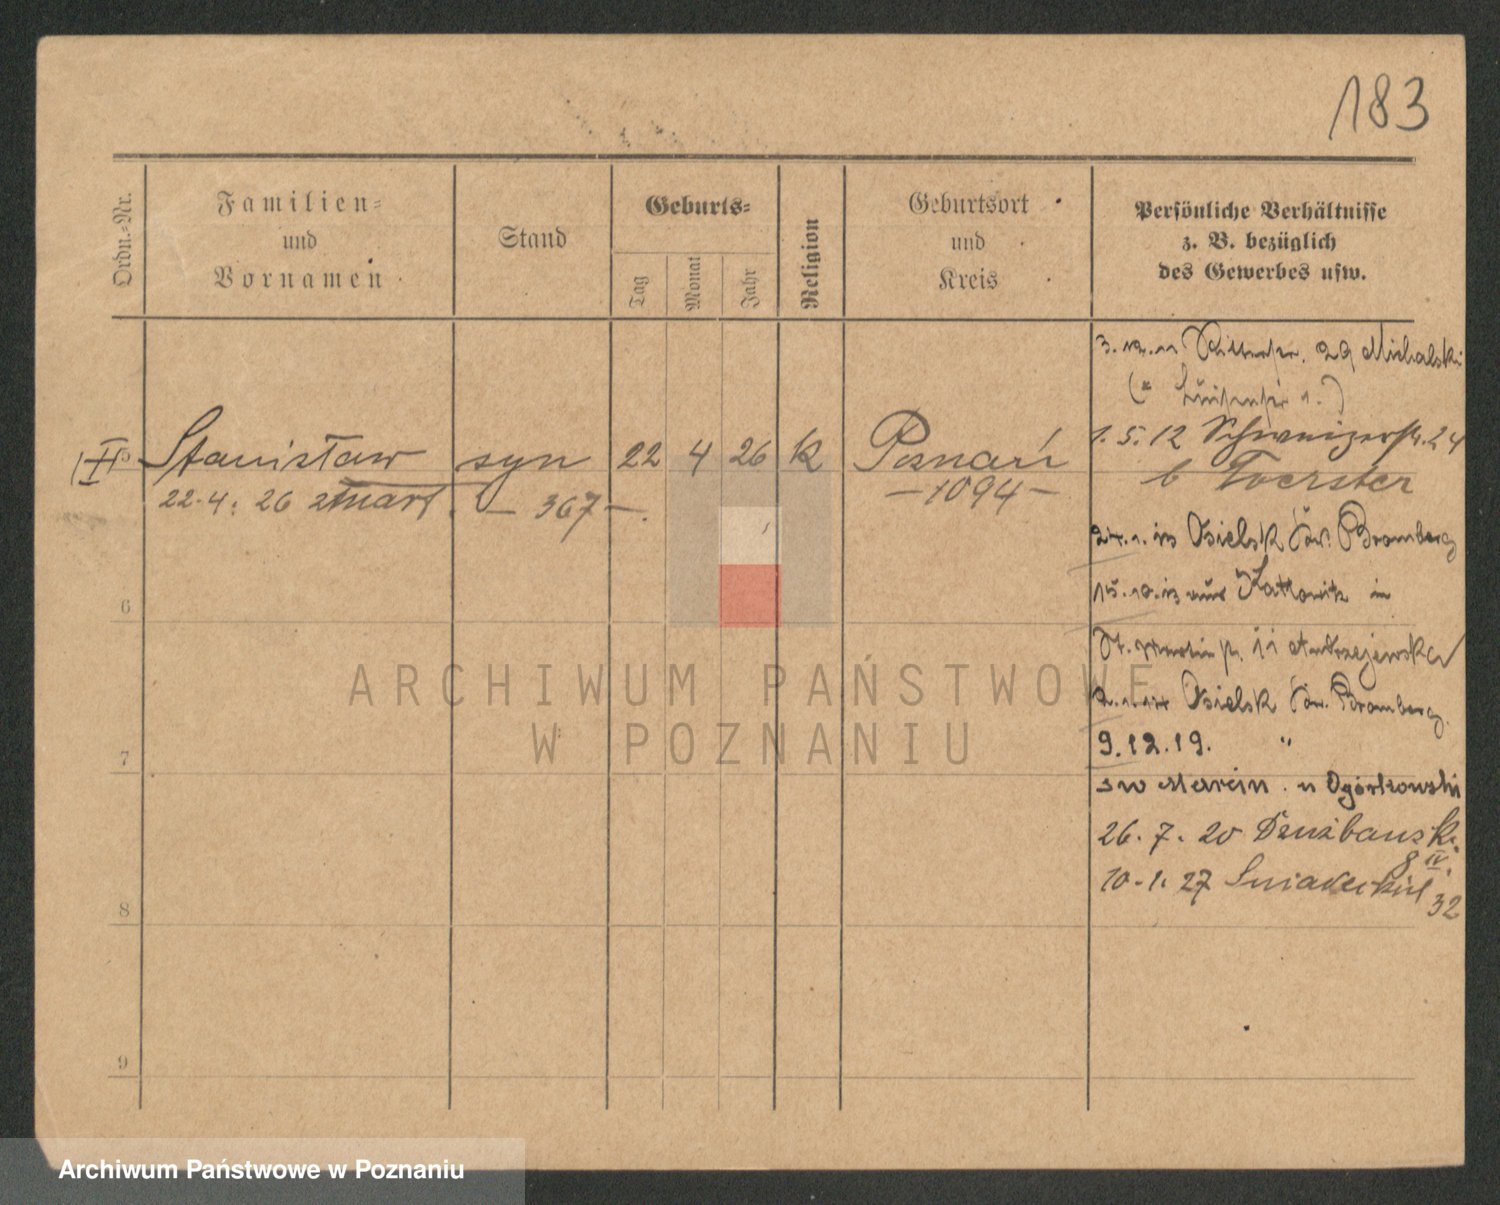 183
Ordn.-Nr.
Familien-
und
Vornamen
Stand
Geburts-
Tag
Monat
Jahr
Religion
Geburtsort
und
Kreis
Persönliche Verhältnisse
z. B. bezüglich
des Gewerbes usw.
29 Michalski
1. 5. 12 Schweizerstr. 24
b Foerster
II 5 Stanisław syn 22 4 26 k Poznań
22. 4. 26 zmarł. – 367 –. – 1094 –
Osielsk Kr. Bromberg
15.10.13 aus Kattowitz in
6
St. Martinstr. 11 Andrzejewska
Osielsk Kr. Bromberg.
9.12.19. "
7
św Marcin u Ogórkowski
26. 7. 20
8 IV.
10. 1. 27 Śniadeckich 32
8
9
ARCHIWUM PAŃSTWOWE
W POZNANIU
Archiwum Państwowe w Poznaniu